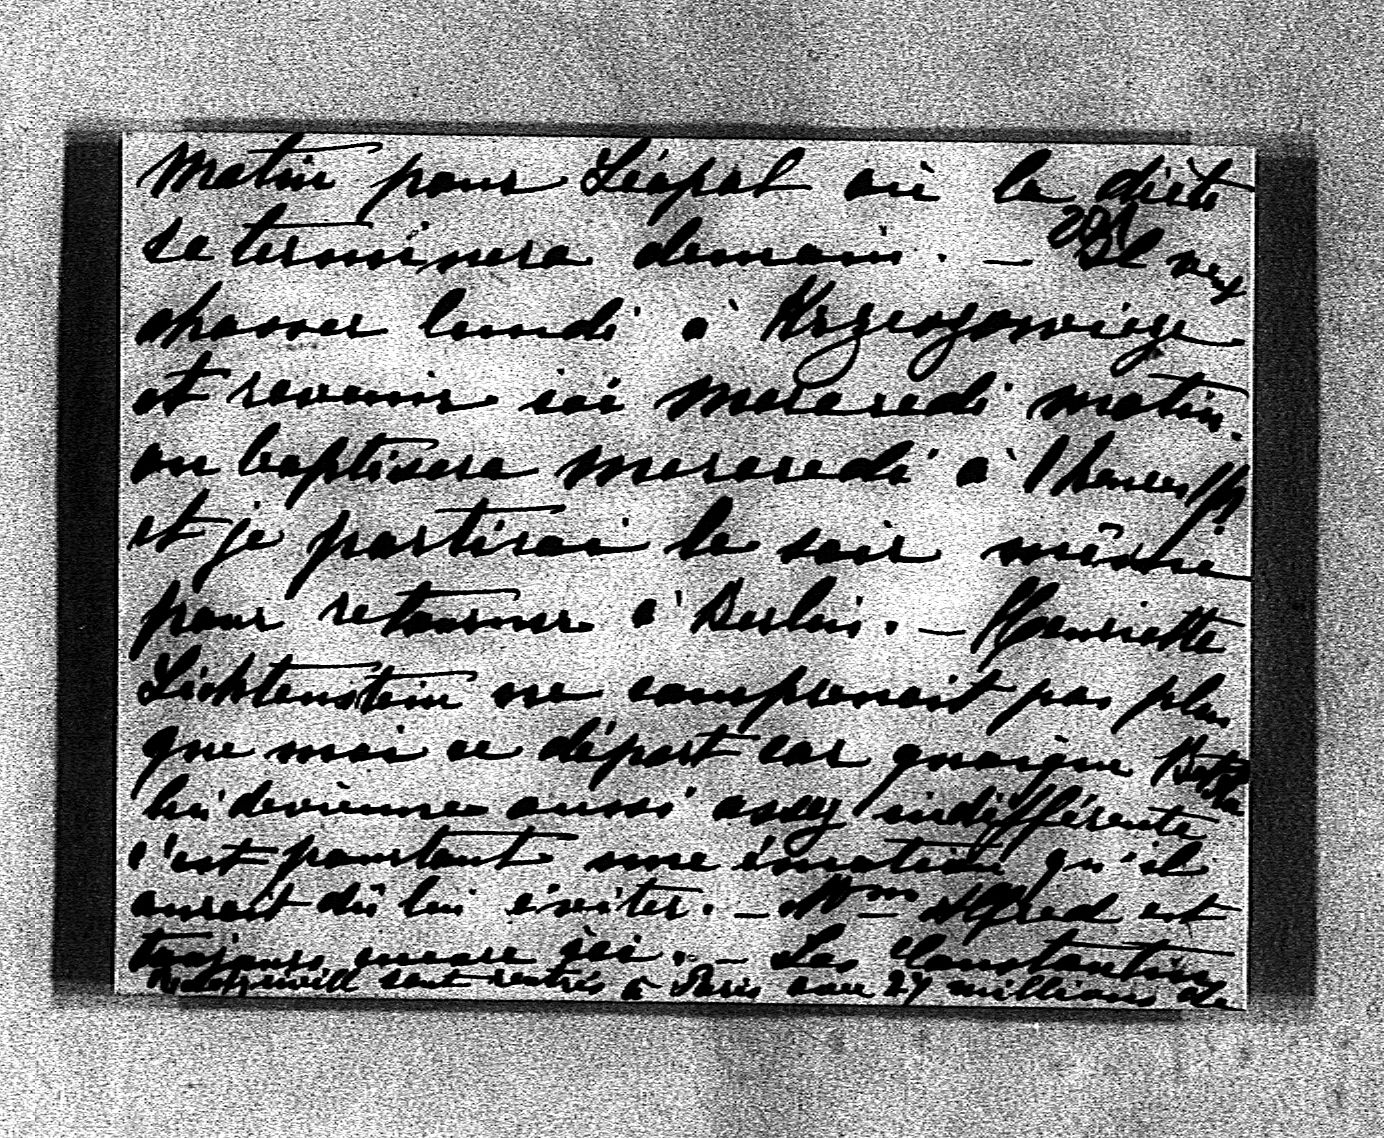 matin pour Léopol où la diète
201
se terminera demain. — Il veut
chasser lundi à Krzeszowice
et revenir ici mercredi matin.
on baptisera mercredi à 1 heure ½
et je partirai le soir même
pour retourner à Berlin. — Henriette
Lichtenstein ne comprenait pas plus
que moi ce départ car quoique
lui devienne aussi assez indifférente
c'est pourtant une émotion qu'il
aurait dû lui éviter. — Mme Alfred est
toujours encore ici. — Les Constantin
Radziwill sont rentrés à Paris avec 27 millions de